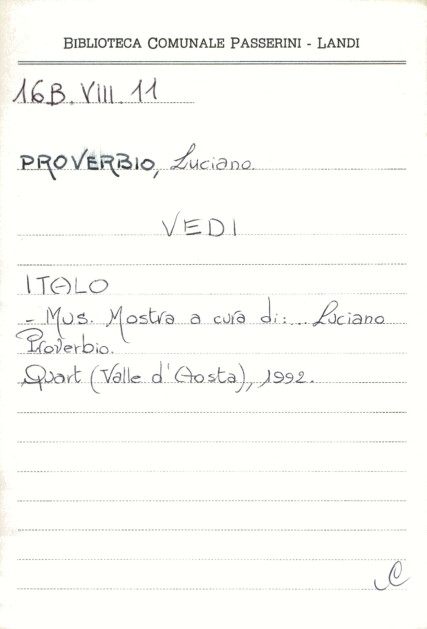 BIBLIOTECA COMUNALE PASSERINI - LANDI
16B. VIII. 11
PROVERBIO, Luciano.
VEDI
ITALO
- Mus. Mostra a cura di:... Luciano
Proverbio.
Quart (Valle d'Aosta), 1992.
C